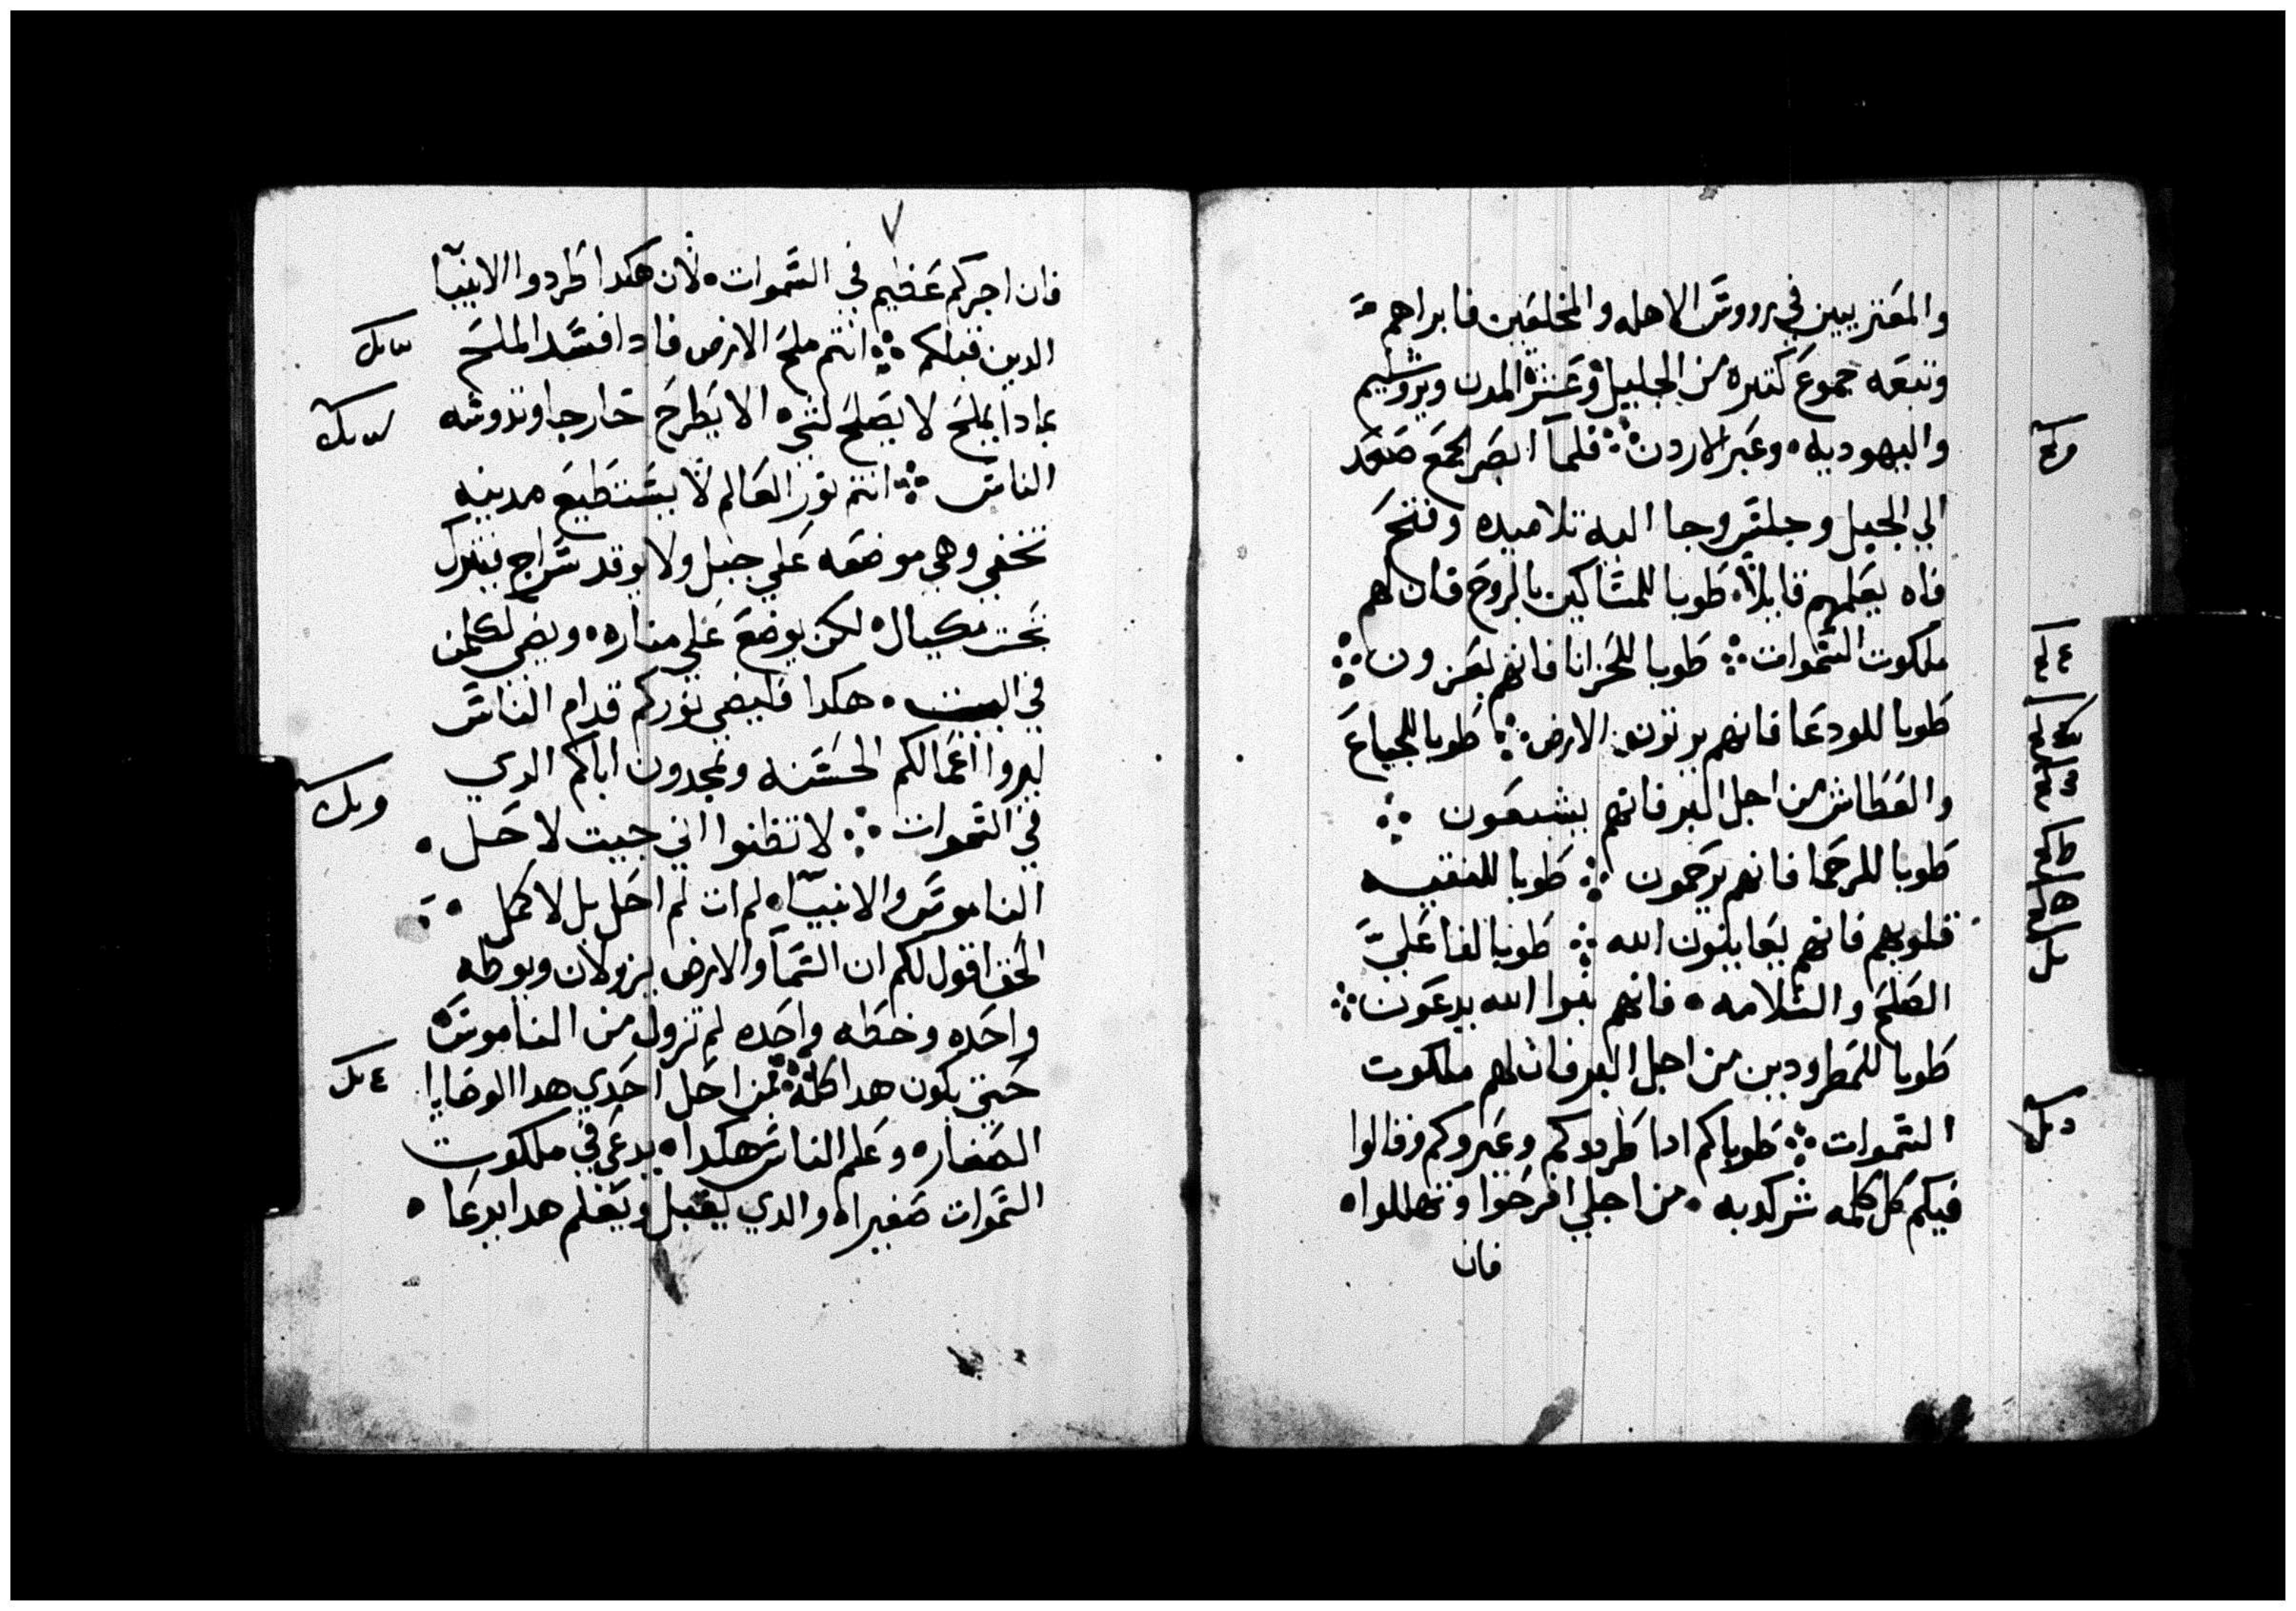 والمعتريين في رووس الاهله والمخلعين فابراهم
وتبعه جموع كتيره من الجليل وعشر المدن ويروشليم
واليهوديه وعبر الاردن فلما ابصر الجمع صعد
الي الجبل وجلس وجا اليه تلاميده وفتح
فاه يعلمهم قايلا طوبا للمساكين بالروح فان لهم
ملكوت السموات طوبا للحزانا فانهم يعزون
طوبا للودعا فانهم يرتون الارض طوبا للجياع
والعطاش من اجل البر فانهم يشبعون
طوبا للرحما فانهم يرحمون طوبا للنقيه
قلوبهم فانهم يعاينون الله طوبا لفاعلي
الصلح والسلامه فانهم بنوا الله يدعون
طوبا للمطرودين من اجل البر فان لهم ملكوت
السموات طوباكم ادا طردوكم وعيروكم وقالوا
فيكم كل كلمه شر كدبه من اجلي افرحوا وتهللوا
فان
٧
فان اجركم عظيم في السموات لان هكدا طردوا الانبيا
الدين قبلكم انتم ملح الارض فادا فسد الملح
بمادا يملح لا يصلح لشي الا يطرح خارجا وتدوسه
الناس انتم نور العالم لا يستطيع مدينه
تخفي وهي موضعه علي جبل ولا يوقد سراج فيترك
تحت مكيال لكن يوضع علي مناره ويضي لكلمن
في البيت هكدا فليضي نوركم قدام الناس
ليروا اعمالكم الحسنه ويمجدون اباكم الدي
في السموات لا تظنوا اني جيت لاحل
الناموس والانبيا لم ات لم احل بل لاكمل
الحق اقول لكم ان السما والارض يزولان ويوطه
واحده وخطه واحده لم تزول من الناموس
حتي يكون هدا كله فمن احل احدي هدا الوصايا
الصغاره وعلم الناس هكدا يدعي في ملكوت
السموات صغيرا والدي يقبل ويعلم هدا يدعا